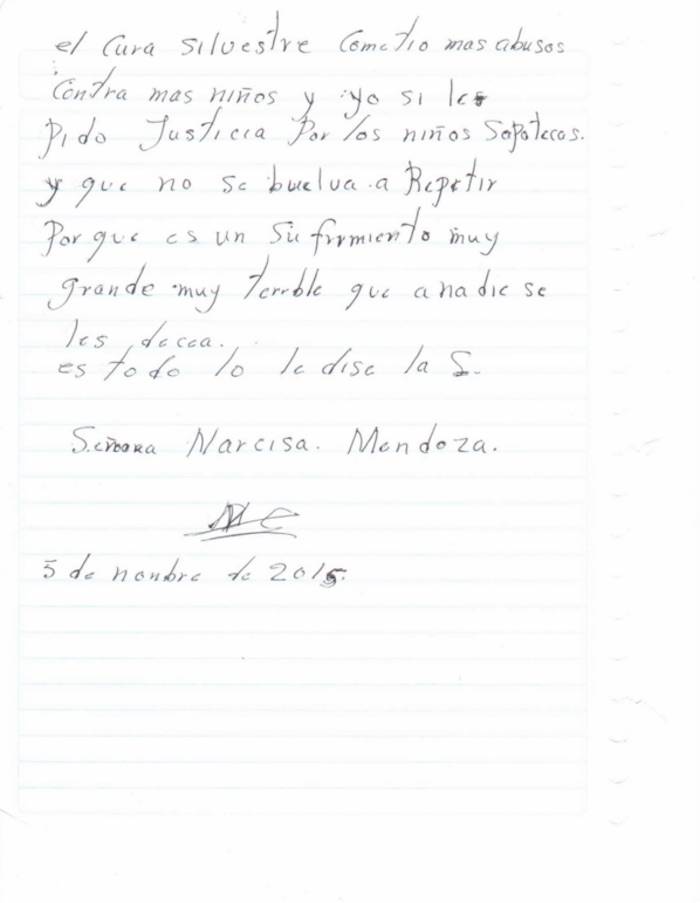 el Cura silvestre Cometio mas abusos
Contra mas niños y yo si les
Pido Justicia Por los niños Sopotecos.
y que no se buelva a Repetir
Porque es un Sufrimiento muy
grande muy terrble que a nadie se
les decea.
es todo lo le dise la S.
Señora Narcisa. Mendoza.
5 de nonbre de 2015.